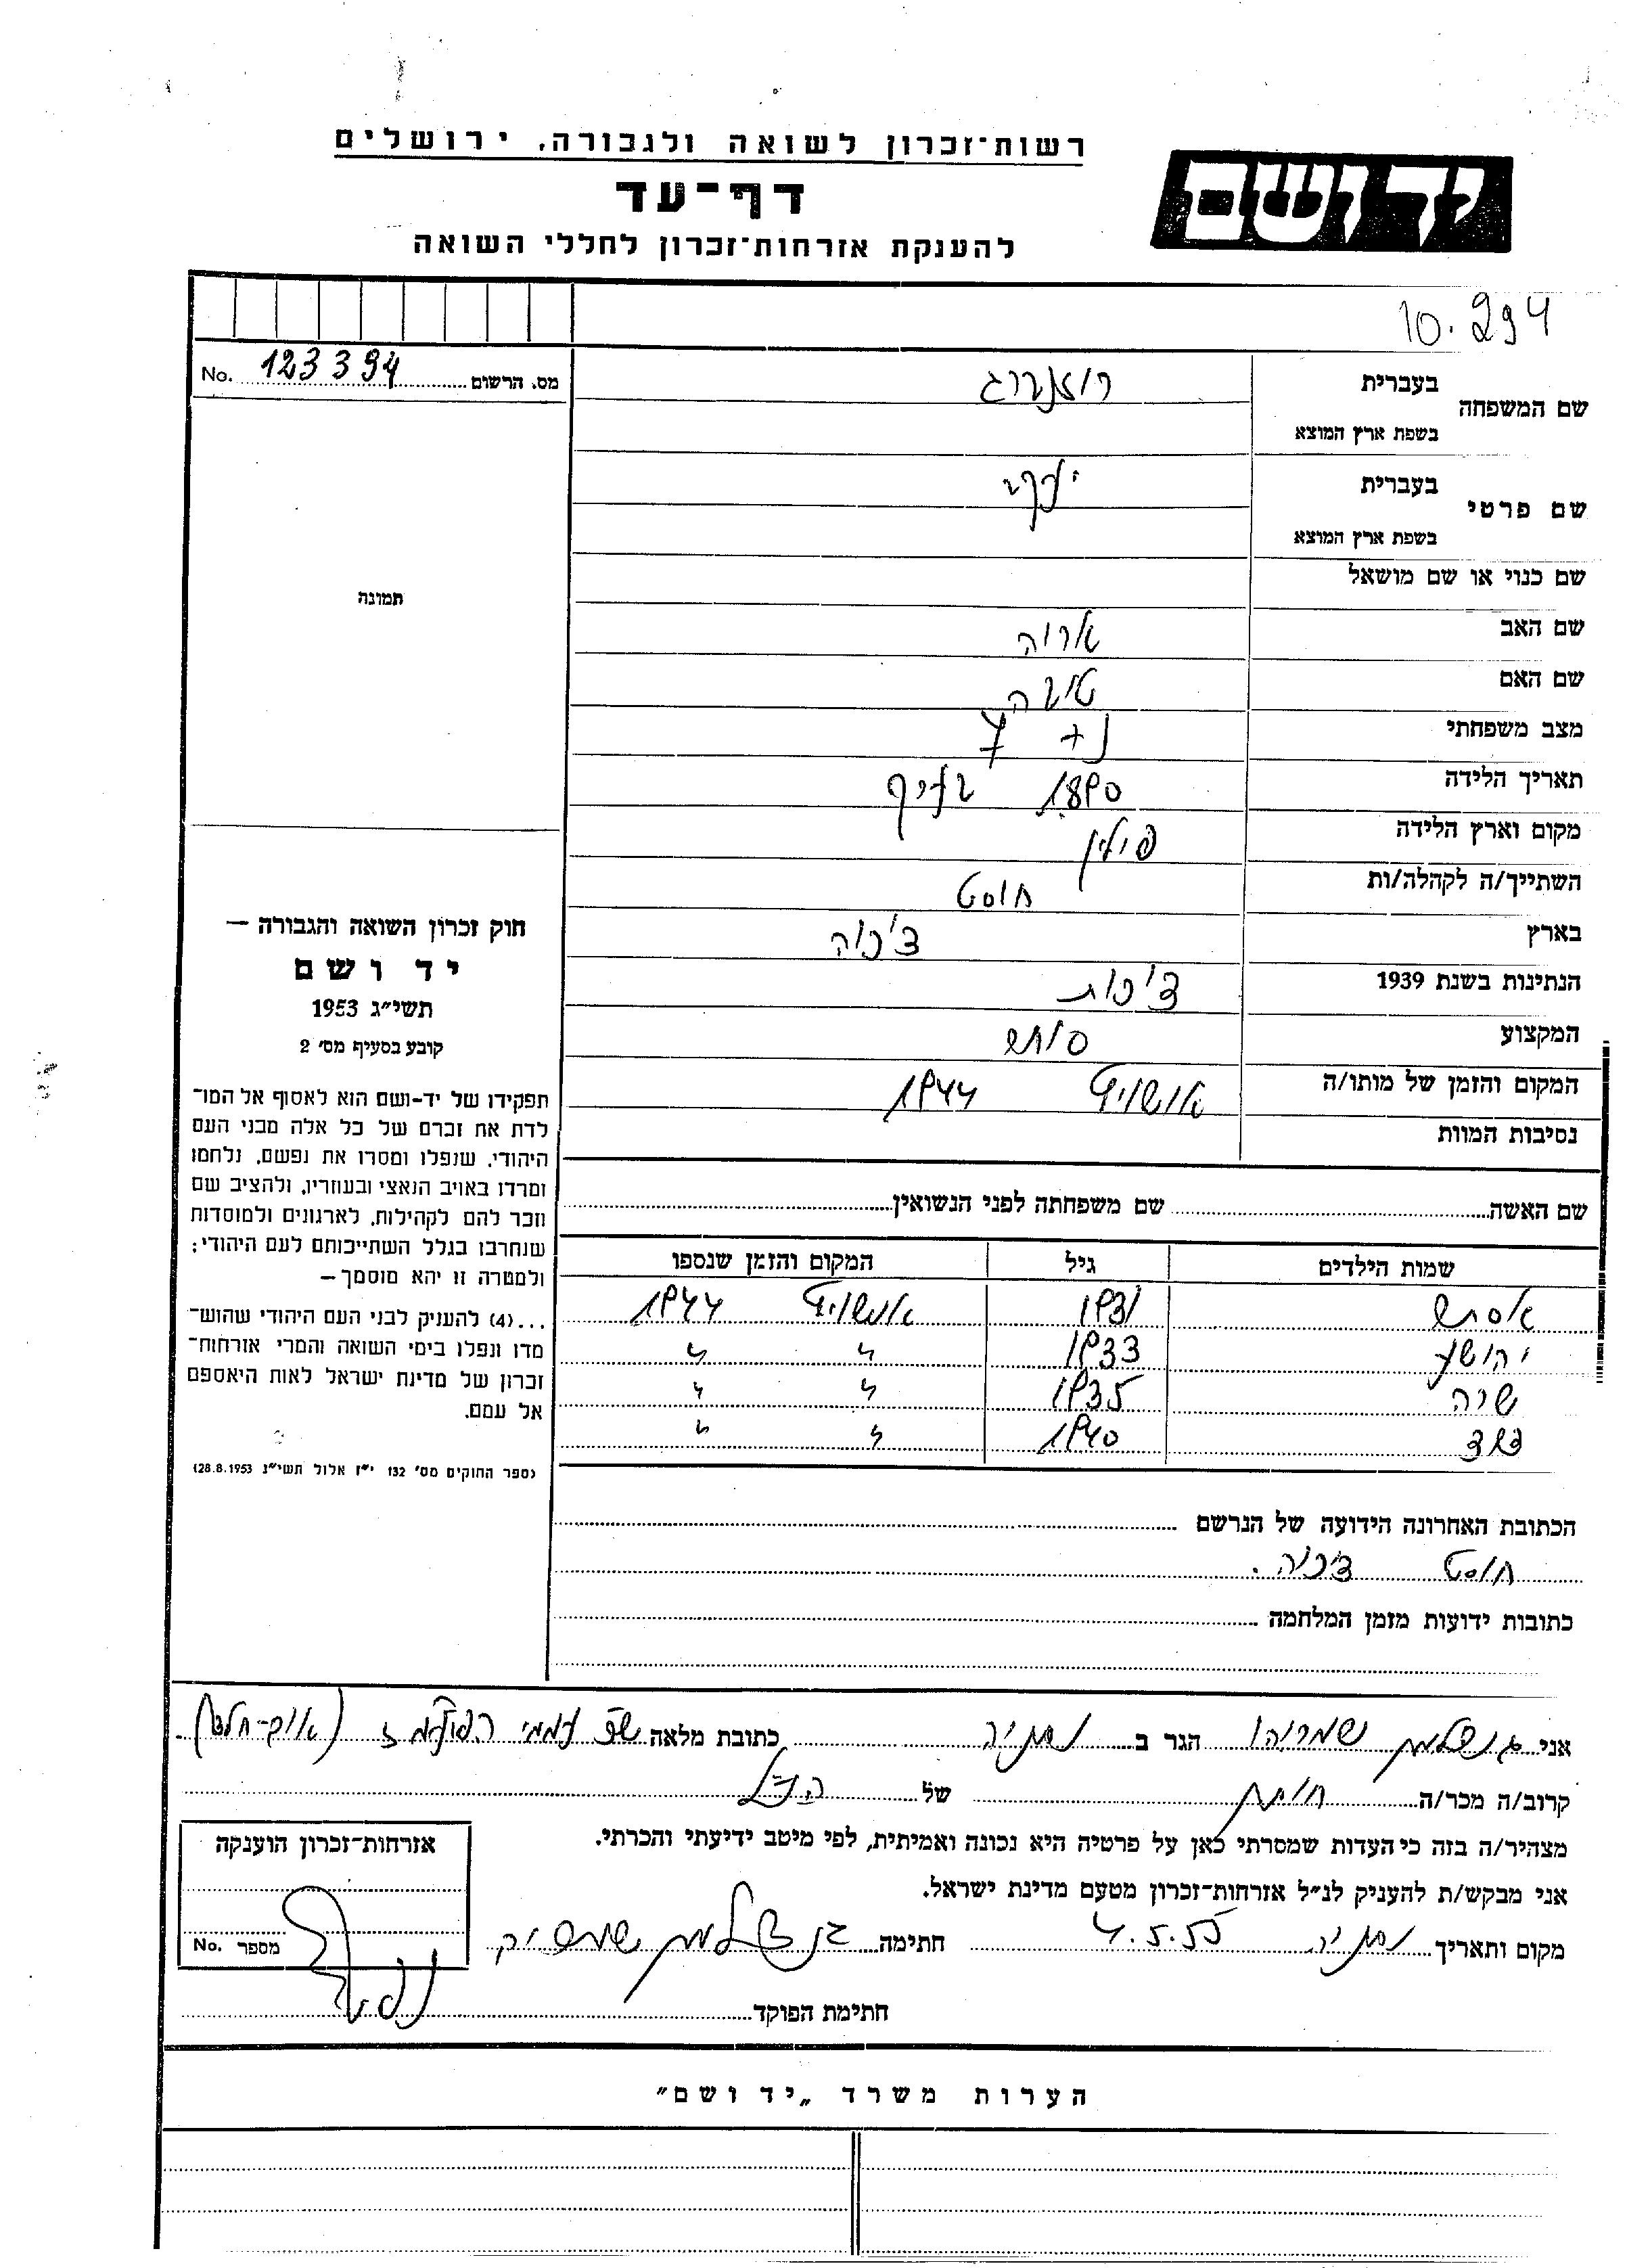 רשות־זכרון לשואה ולגבורה, ירושלים
יד ושם
דף-עד
להענקת אזרחות־זכרון לחללי השואה
10.294
No. 123394 מס. הרשום
שם המשפחה בעברית
בשפת ארץ המוצא
שם פרטי בעברית יעקב
בשפת ארץ המוצא
שם כנוי או שם מושאל
תמונה
שם האב אריה
שם האם
מצב משפחתי נ + 7
תאריך הלידה 1890 בערך
מקום וארץ הלידה פולין
השתייך/ה לקהלה/ות חוסט
בארץ צ'כיה
הנתינות בשנת 1939 צ'כית
המקצוע סוחר
המקום והזמן של מותו/ה אושויץ 1944
נסיבות המוות
חוק זכרון השואה והגבורה —
יד ושם
תשי״ג 1953
קובע בסעיף מס׳ 2
תפקידו של יד-ושם הוא לאסוף אל המו־
לדת את זכרם של כל אלה מבני העם
היהודי, שנפלו ומסרו את נפשם, נלחמו
ומרדו באויב הנאצי ובעוזריו, ולהציב שם
וזכר להם לקהילות, לארגונים ולמוסדות
שנחרבו בגלל השתייכותם לעם היהודי;
ולמטרה זו יהא מוסמך —
...(4) להעניק לבני העם היהודי שהוש־
מדו ונפלו בימי השואה והמרי אזרחות־
זכרון של מדינת ישראל לאות היאספם
אל עמם.
(ספר החוקים מס׳ 132 י״ז אלול תשי״ג 28.8.1953)
שם האשה שם משפחתה לפני הנשואין
שמות הילדים גיל המקום והזמן שנספו
אסתר 1931 אושויץ 1944
יהושע 1933 " "
שרה 1935 " "
1940 " "
הכתובת האחרונה הידועה של הנרשם
חוסט צ'כיה.
כתובות ידועות מזמן המלחמה
אני הגר ב נתניה כתובת מלאה
קרוב/ה מכר/ה של הנ״ל
מצהיר/ה בזה כי העדות שמסרתי כאן על פרטיה היא נכונה ואמיתית, לפי מיטב ידיעתי והכרתי.
אני מבקש/ת להעניק לנ״ל אזרחות־זכרון מטעם מדינת ישראל.
מקום ותאריך נתניה 4.5.55 חתימה
אזרחות-זכרון הוענקה
מספר No.
חתימת הפוקד
הערות משרד „יד ושם״